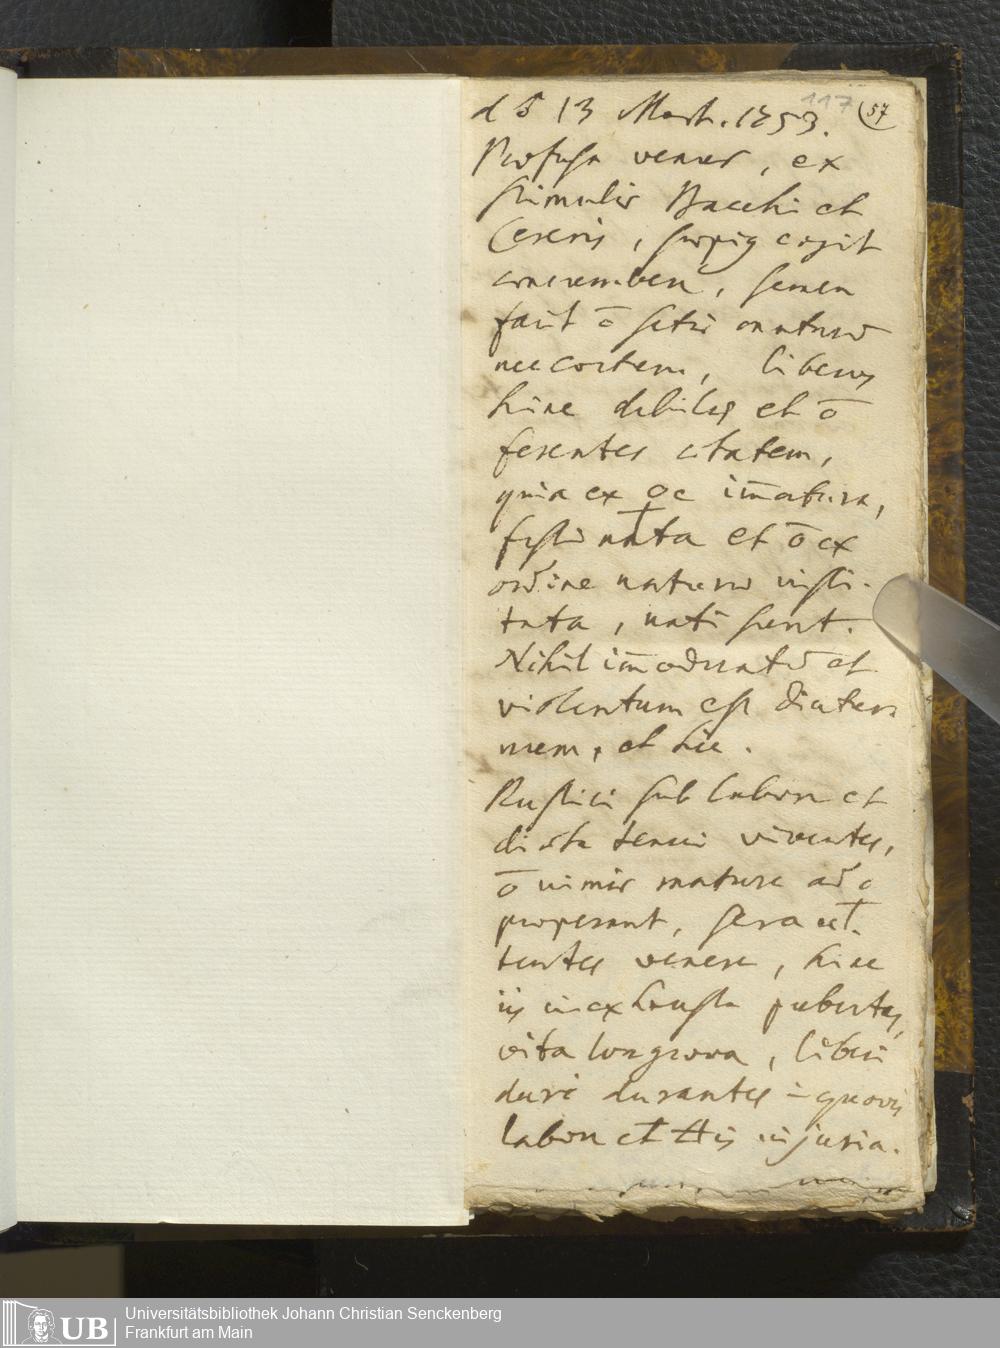 d ♂ 13 Mart. 1753. 117 (57
Profusa venus, ex
stimulis Bacchi et
Cereris, saepig cogit
concumbere, semen
facit ō satis maturū
nec coctem, liberos
hinc debiles et ō
ferentes aetatem,
quia ex immatura,
festinata et ō ex
ordine naturae insti-
tuta, nati sunt.
Nihil im̄oderatū et
violentum est diutur
num, et hic.
Rustici sub labore et
diaeta tenui viventes,
ō nimis mature ad
properant, sera
venere, hinc
iis inexhausta pubertas,
vita longaeva, liberi
duri durantes quovis
labore et injuria.
UB
Universitätsbibliothek Johann Christian Senckenberg
Frankfurt am Main